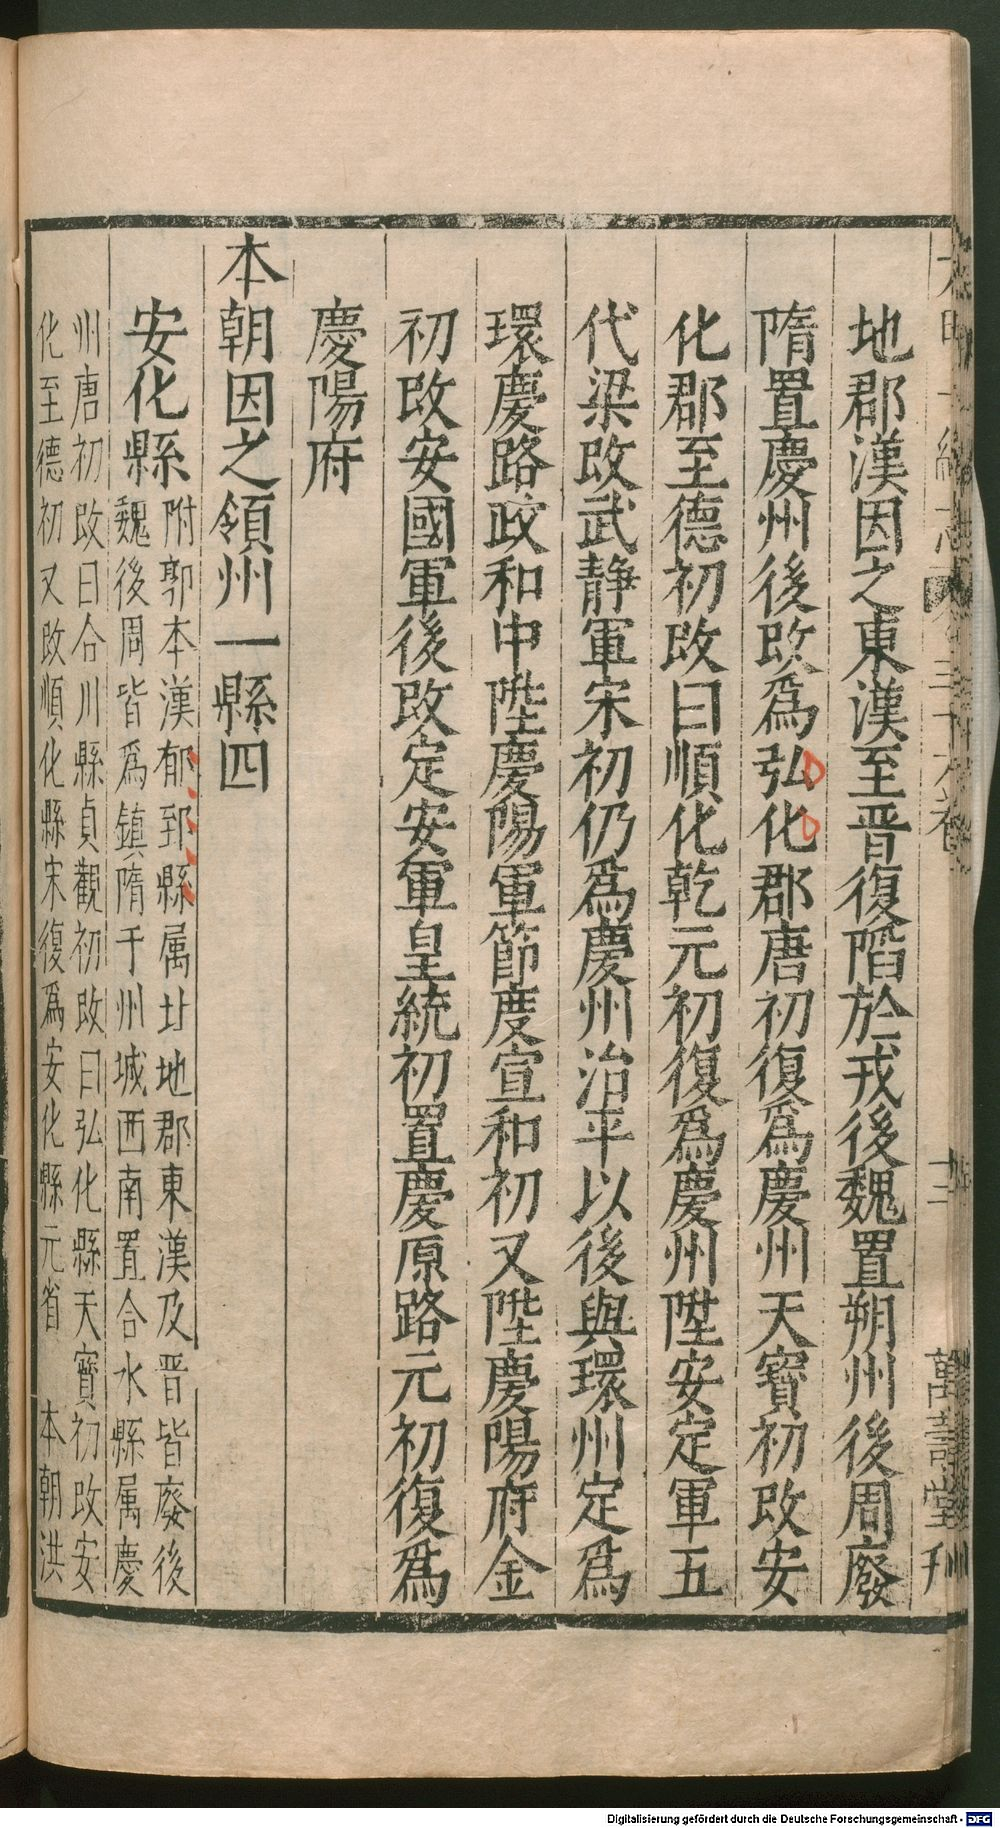 地郡漢因之東漢至晉復䧟於戎後魏置朔州後周廢
隋置慶州後改爲弘化郡唐初復爲慶州天寶初改安
化郡至德初改曰順化乾元初復爲慶州陞安定軍五
代梁改武静軍宋初仍爲慶州治平以後與環州定爲
環慶路政和中陞慶陽軍節度宣和初又陞慶陽府金
初改安國軍後改定安軍皇統初置慶原路元初復爲
慶陽府
本朝因之領州一縣四
安化縣
附郭本漢郁郅縣属北地郡東漢及晋皆廢後
魏後周皆爲鎮隋于州城西南置合水縣属慶
州唐初改曰合川縣貞觀初改曰弘化縣天寶初改安
化至德初又改順化縣宋復爲安化縣元省 本朝洪
萬壽堂刋
Digitalisierung gefördert durch die Deutsche Forschungsgemeinschaft - DFG